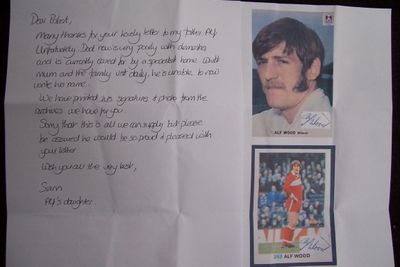 Dear Robert,
Many thanks for your lovely letter to my father, Alf.
Unfortunately, Dad now is very poorly with dementia
and is currently cared for by a specialist home. Whilst
mum and the family visit daily, he is unable to now
write his name.
We have printed his signature & photo from the
archives we have for you.
Sorry that this is all we can supply but please
be assured he would be so proud & pleased with
your letter.
Wish you all the very best,
Alf's daughter.
ALF WOOD Millwall
A Wood
253 ALF WOOD
A Wood